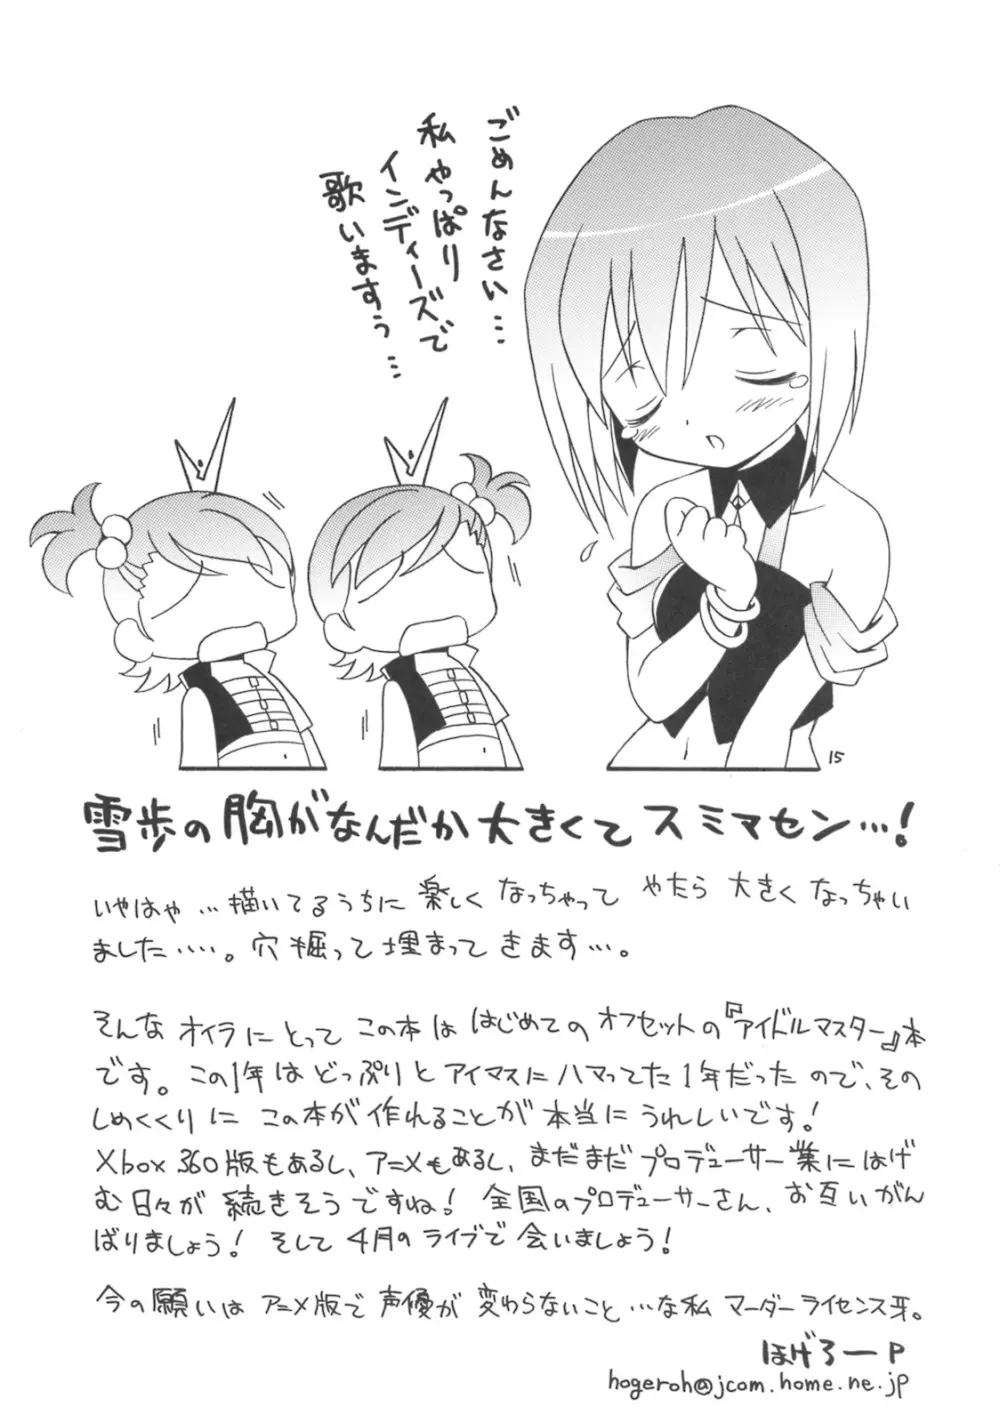 ごめんなさい…
私やっぱり
インディーズで
歌いますぅ…
15
雪歩の胸がなんだか大きくてスミマセン…!
いやはや…描いてるうちに楽しくなっちゃってやたら大きくなっちゃい
ました‥‥。穴掘って埋まってきます…。
そんなオイラにとってこの本ははじめてのオフセットの『アイドルマスター』本
です。この1年はどっぷりとアイマスにハマってた1年だったので、その
しめくくりにこの本が作れることが本当にうれしいです!
Xbox360版もあるし、アニメもあるし、まだまだプロデューサー業にはげ
む日々が続きそうですね!全国のプロデューサーさん、お互いがん
ばりましょう!そして4月のライブで会いましょう!
今の願いはアニメ版で声優が変わらないこと…な私マーダーライセンス牙。
ほげろーP
hogeroh@jcom.home.ne.jp